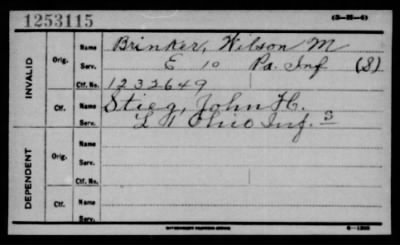 1253115
(3-35-4)
INVALID
Orig. Name Brinker, Wilson M
Serv. E 10 Pa. Inf (S)
Ctf. No. 1232649
Ctf. Name Stieg, John H.
Serv. Ohio Inf. S
DEPENDENT
Orig. Name
Serv.
Ctf. No.
Ctf. Name
Serv.